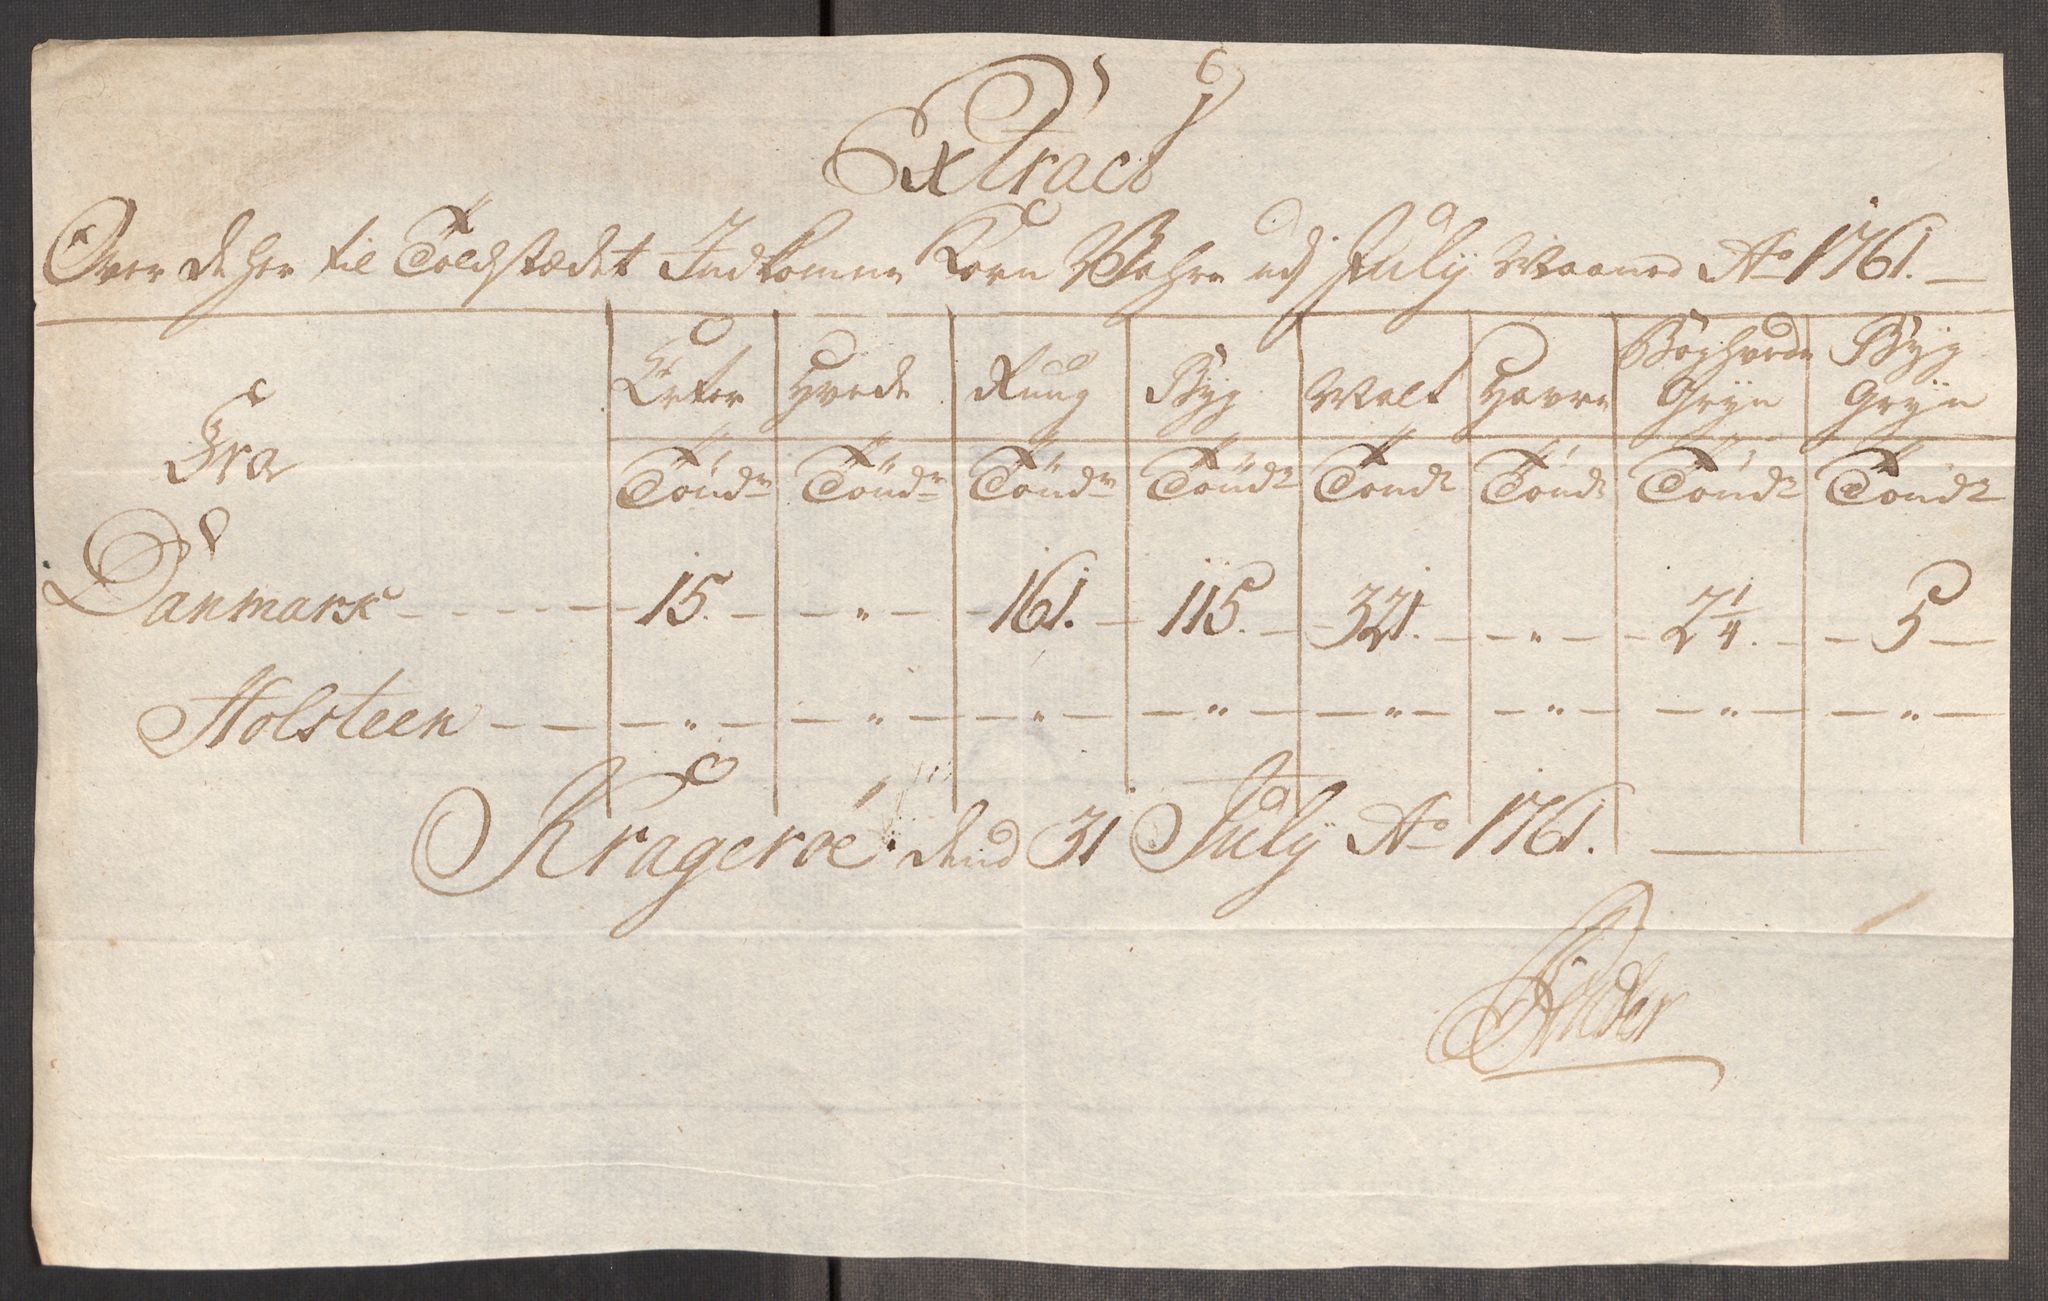 Extract
Over de her til Toldstædet Indkomne Korn Wahre udj July Maaned Ao 1761.
Fra
Erter Hvede Ruug Byg Malt Havre Boghvede Gryn Byg Gryn
Tönder Tönder Tönder Tönder Tönd: Tönd: Tönd: Tönd:
Danmark 15. " 161. 115. 321. " 2 1/4. 5
Holsteen " " " " " " " "
Krageröe dend 31 July Ao 1761.